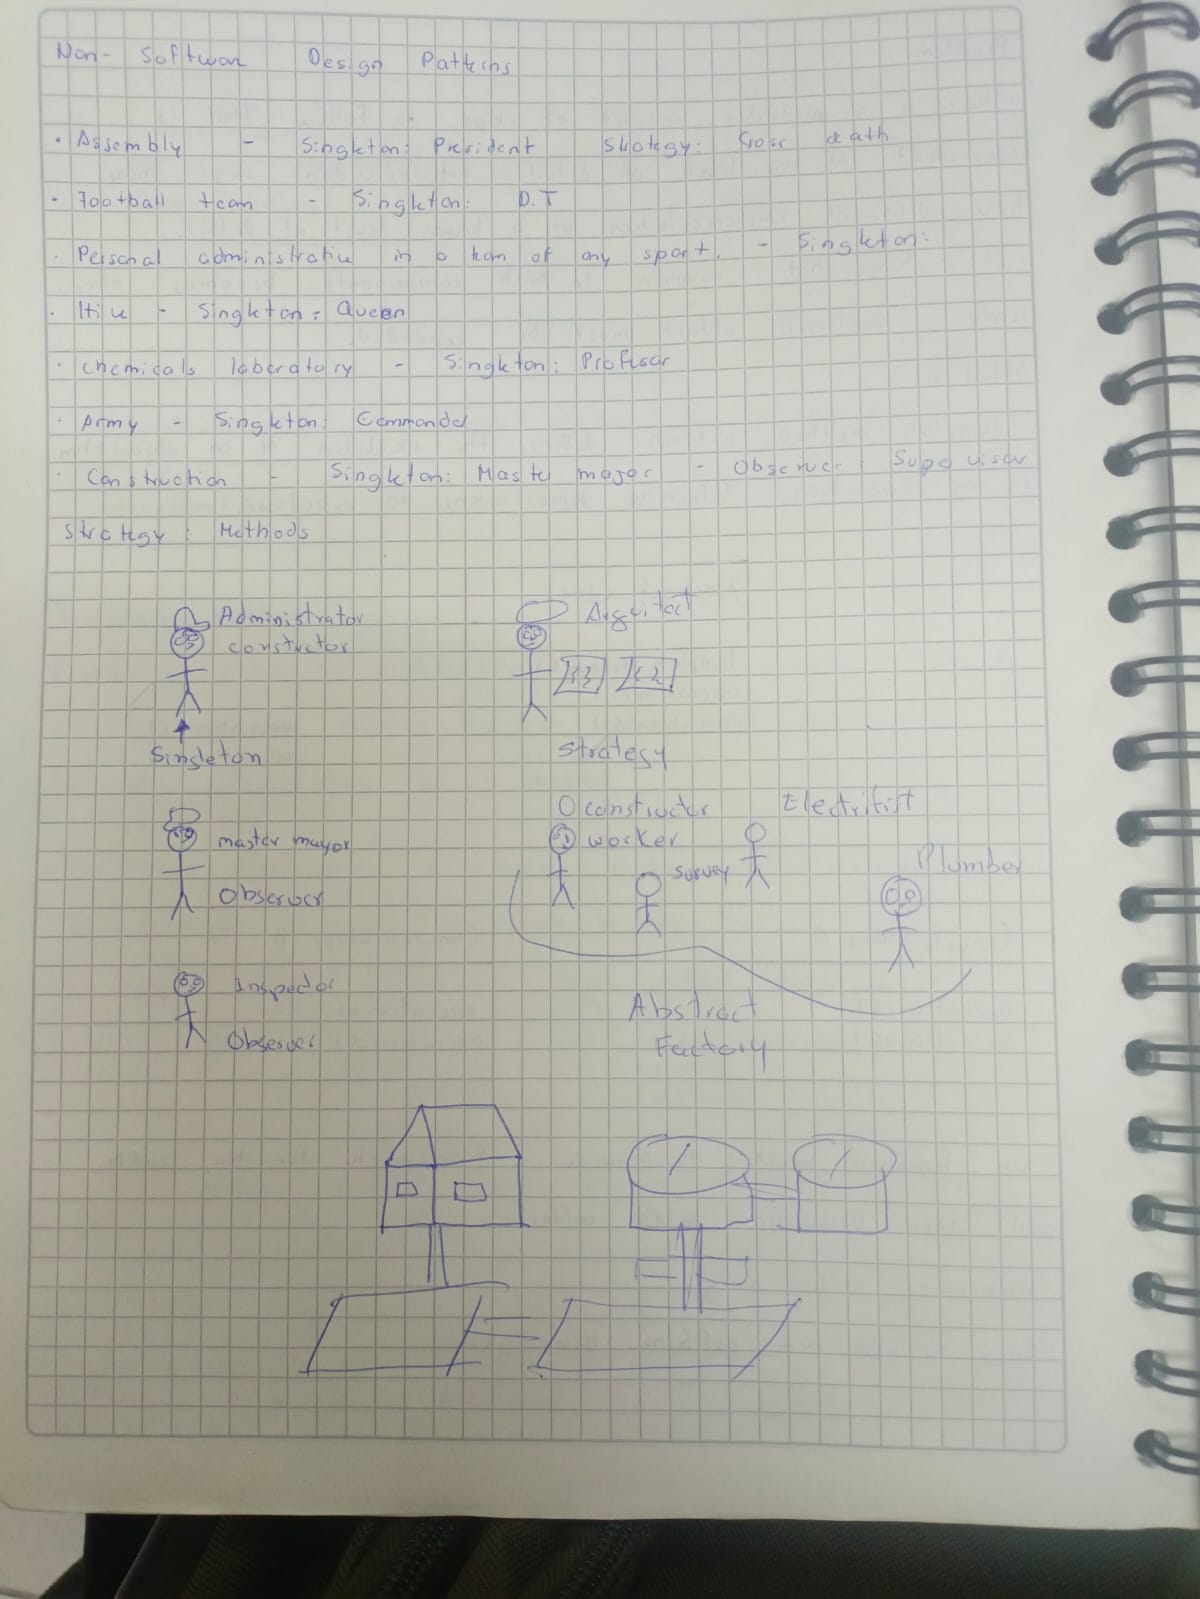 Non- Software Design Patterns
· Assembly - Singleton: President Strategy: death
· Football team - Singleton: D.T
· Personal administrative in a team of any sport. - Singleton:
· Hive - Singleton: Queen
· Chemicals laboratory - Singleton: Profesor
· Army - Singleton: Commander
· Construction - Singleton: Master major - Observer: Supervisor
Strategy: Methods
Administrator
constructor
Singleton
Arquitect
Strategy
master mayor
Observer
constructor
worker
Survey
Electritist
Plumber
Abstract
Factory
Inspector
Observer